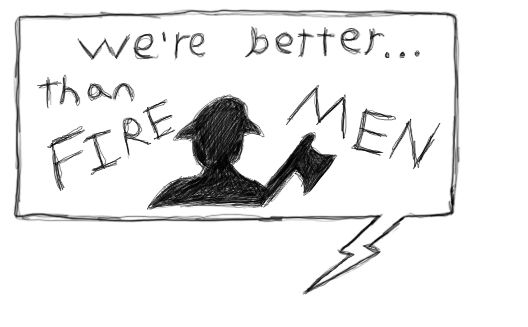 we're better...
than
FIRE MEN